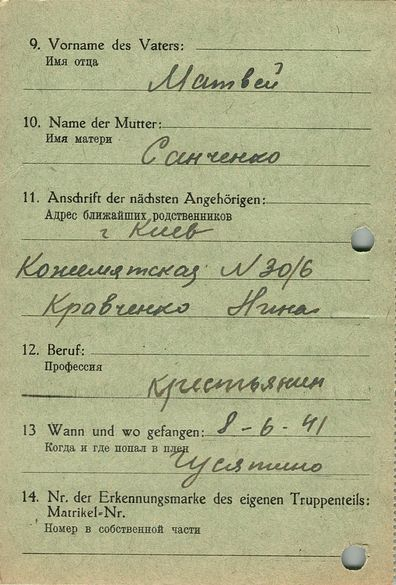 9. Vorname des Vaters:
Имя отца
Матвей
10. Name der Mutter:
Имя матери
Санченко
11. Anschrift der nächsten Angehörigen:
Адрес ближайших родственников
г Киев
Кожемятская N 30/6
Кравченко Нина
12. Beruf:
Профессия
крестьянин
13 Wann und wo gefangen: 8-6-41
Когда и где попал в плен
Гусятино
14. Nr. der Erkennungsmarke des eigenen Truppenteils:
Matrikel-Nr.
Номер в собственной части